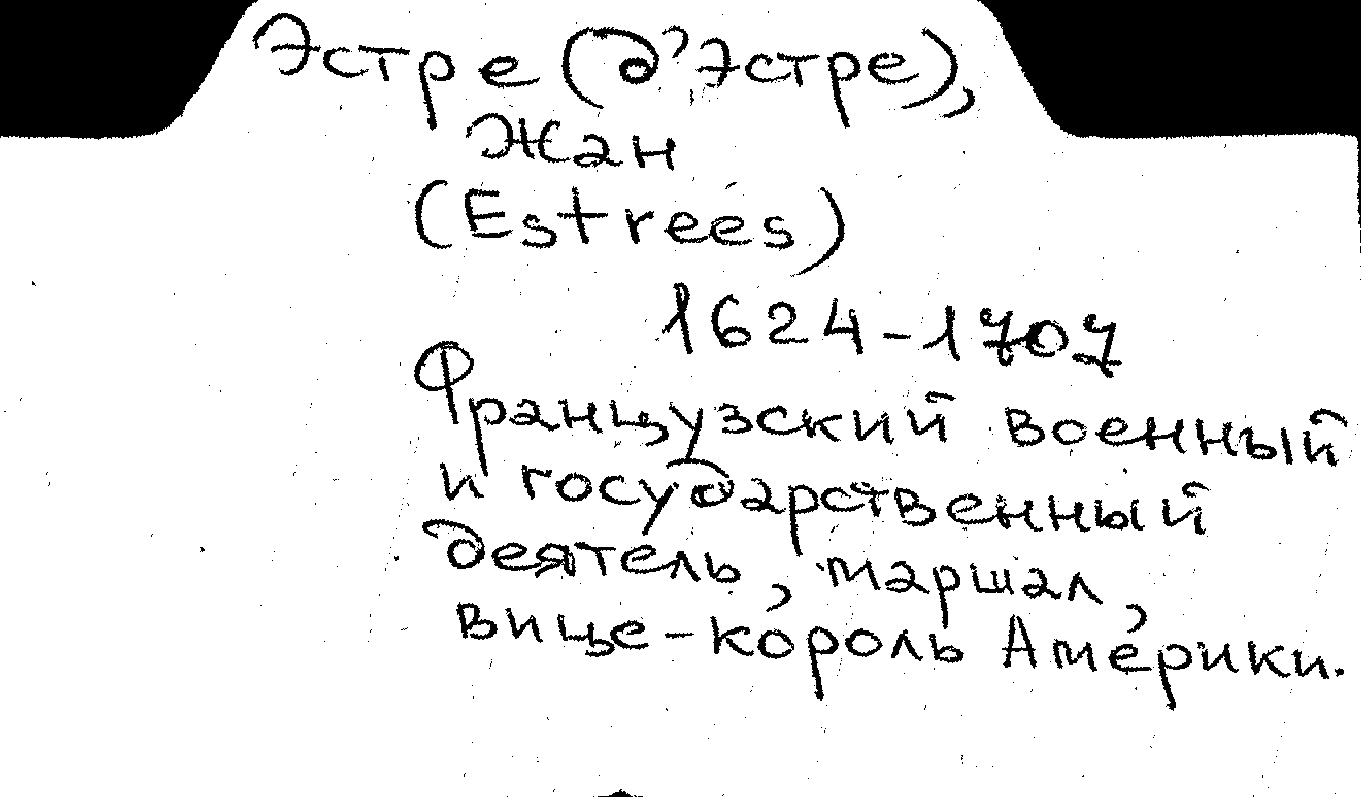 Эстре (д'Эстре),
Жан
(Estrees)
1624-1707
Французский военный
и государственный
деятель, маршал,
вице-король Америки.